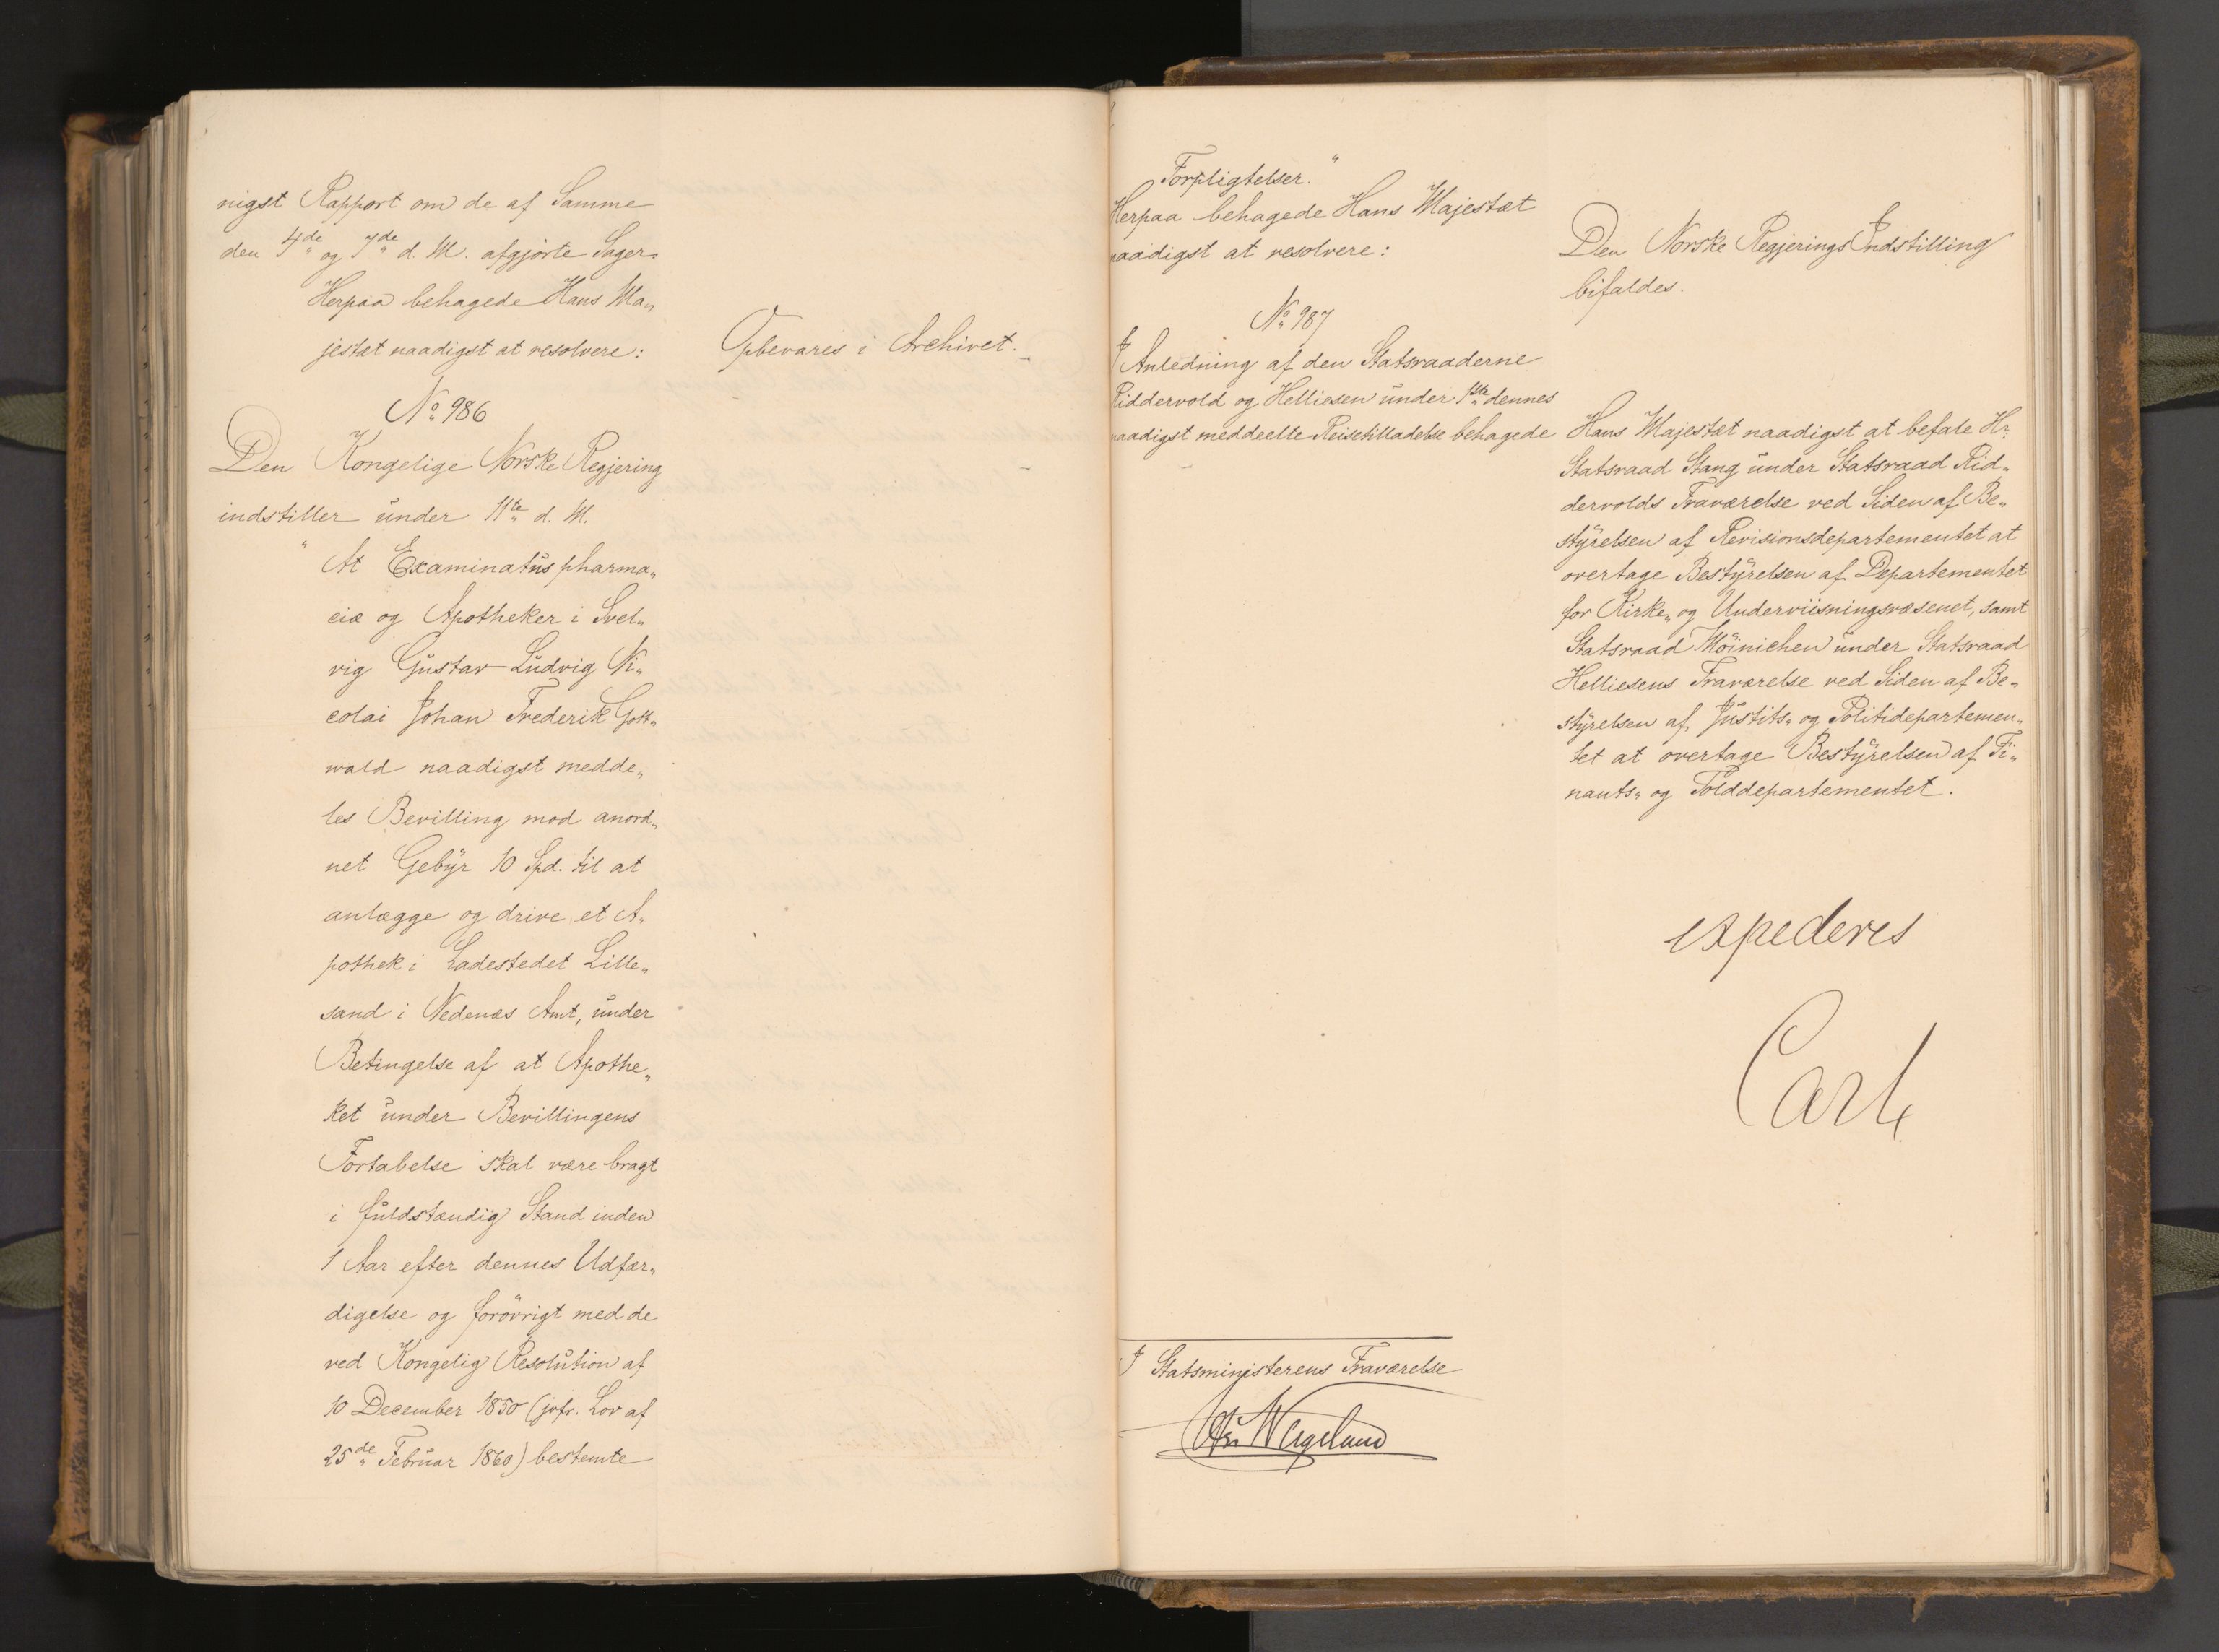 nigst Rapport om de af Samme
den 4de og 7de d. M. afgjorte Sager
Herpaa behagede Hans Ma„
jestæt naadigst at resolvere:
Opbevares i Archivet.
No 986
Den Kongelige Norske Regjering
indstiller under 11te d. M.
"At Examinatus pharma„
ciæ og Apotheker i Svel„
vig Gustav Ludvig Ni„
colai Johan Frederik Gott„
wald naadigst medde„
les Bevilling mod anord„
net Gebyr 10 Spd. til at
anlægge og drive et A„
pothek i Ladestedet Lille„
sand i Nedenæs Amt, under
Betingelse af at Apothe„
ket under Bevillingens
Fortabelse skal være bragt
i fuldstændig Stand inden
1 Aar efter dennes Udfær„
digelse og forövrigt med de
ved Kongelig Resolution af
10 December 1850 (jvfr. Lov af
25de Februar 1860) bestemte
Forpligtelser."
Herpaa behagede Hans Majestæt
naadigst at resolvere:
Den Norske Regjerings Indstilling
bifaldes.
No 987
I Anledning af den Statsraaderne
Riddervold og Helliesen under 1ste dennes
naadigst meddeelte Reisetilladelse behagede
Hans Majestæt naadigst at befale Hr.
Statsraad Stang under Statsraad Rid„
dervolds Fraværelse ved Siden af Be„
styrelsen af Revisionsdepartementet at
overtage Bestyrelsen af Departementet
for Kirke„ og Underviisningsvæsenet, samt
Statsraad Möinichen under Statsraad
Helliesens Fraværelse ved Siden af Be„
styrelsen af Justits„ og Politidepartemen„
tet at overtage Bestyrelsen af Fi„
nants„ og Tolddepartementet.
expederes
Carl
I Statsministerens Fraværelse
Wergeland